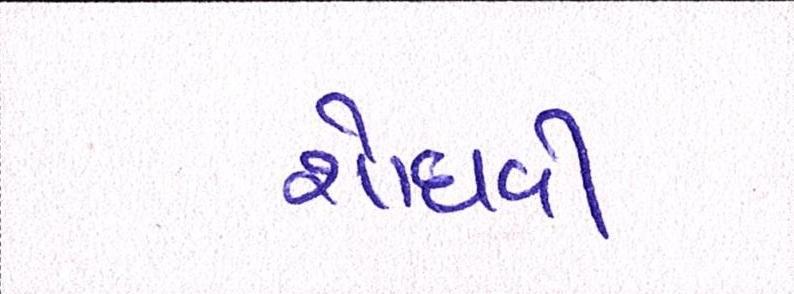 શોધવી